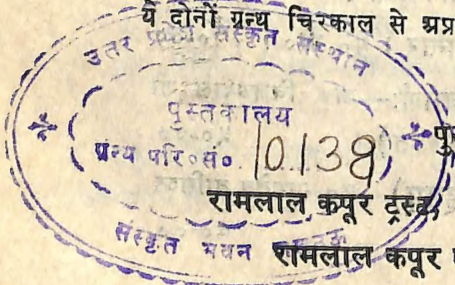 ये दोनों ग्रन्थ चिरकाल से अप्र
उत्तर प्रदेश संस्कृत संस्थान
पुस्तकालय
ग्रन्थ परि०सं० 10138
रामलाल कपूर ट्रस्ट,
संस्कृत भवन
रामलाल कपूर